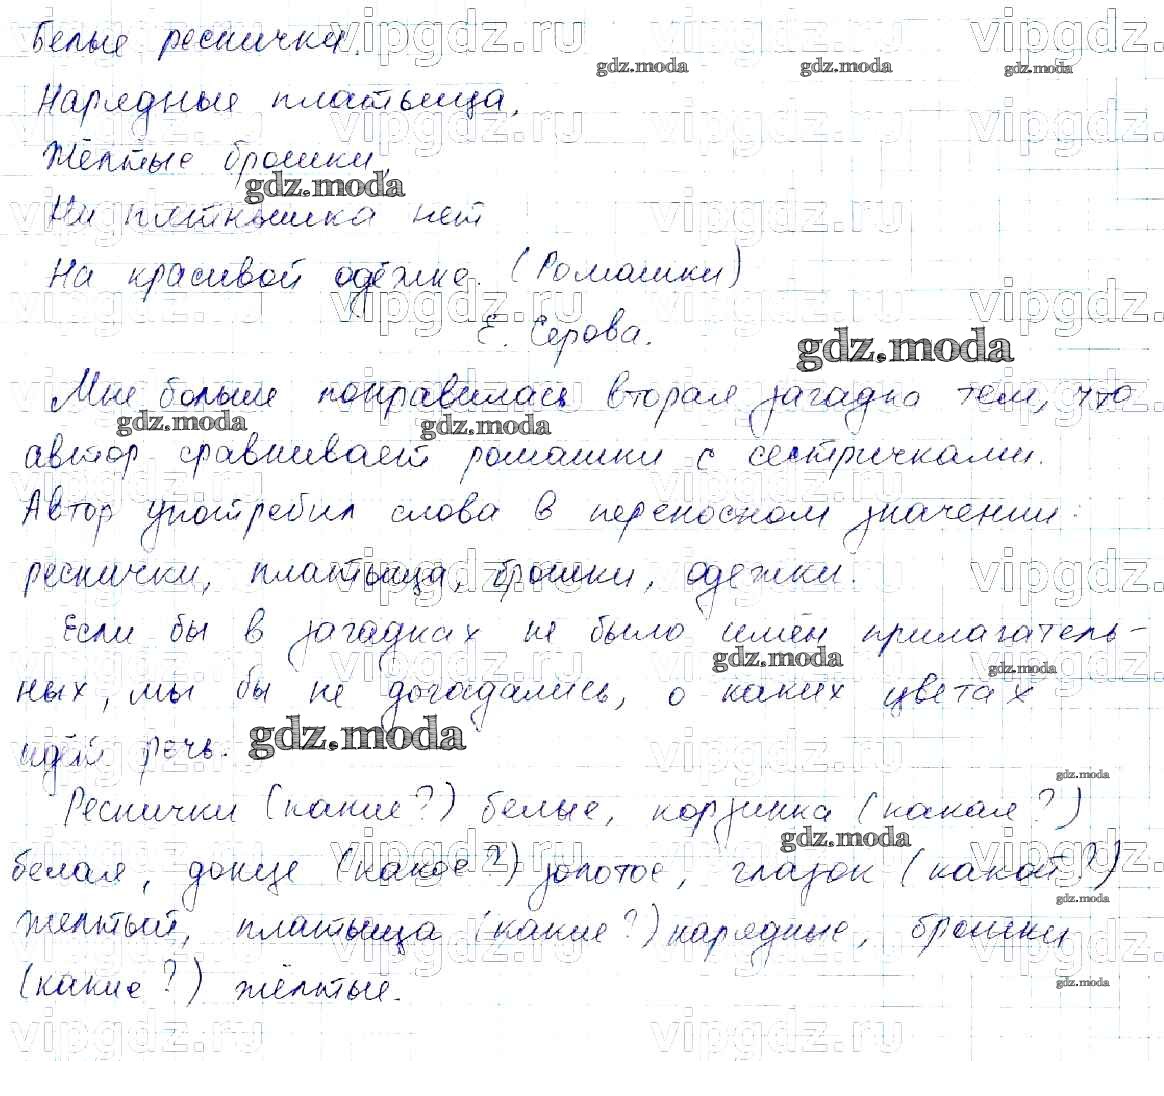 Белые реснички.
Нарядные платьица,
Жёлтые брошки,
Ни пятнышка нет
На красивой одёжке. (Ромашки)
Е. Серова.
Мне больше понравилась вторая загадка тем, что
автор сравнивает ромашки с сестричками.
Автор употребил слова в переносном значении:
реснички, платьица, брошки, одежки.
Если бы в загадках не было имён прилагатель-
ных, мы бы не догадались, о каких цветах
идёт речь.
Реснички (какие?) белые, корзинка (какая?)
белая, донце (какое?) золотое, глазок (какой?)
желтый, платьица (какие?) нарядные, брошки
(какие?) жёлтые.
vipgdz.ru
gdz.moda